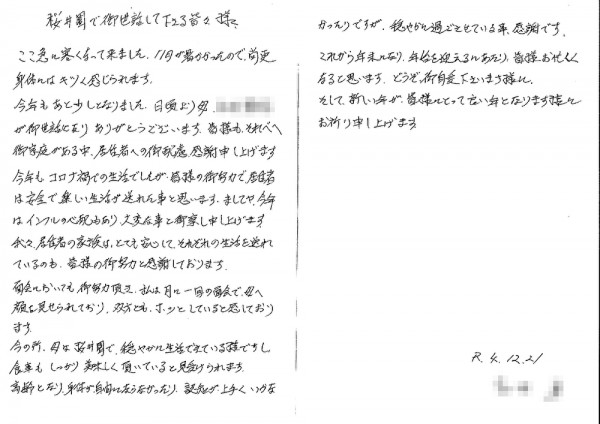 桜井園で御世話して下さる皆々様、
ここ急に寒くなって来ました。11月が暖かかったので、尚更
身体にはキツく感じられます。
今年もあと少しとなりました。日頃より母、
が御世話になりありがとうございます。皆様も、それぞれ
御家庭がある中、居住者への御配慮感謝申し上げます
今年も コロナ禍での生活でしたが、皆様の御努力で、居住者
は安全で楽しい生活が送れた事と思います。ましてや、今年
はインフルの心配もあり、大変な事と御察し申し上げます。
我々、居住者の家族は、とても安心して、それぞれの生活を送れ
ているのも、皆様の御努力と感謝しております。
面会においても御努力頂き、私は月に一回の面会で、母へ
顔を見せられており、双方とも、ホッとしていると感じており
ます。
今の所、母は桜井園で、穏やかに生活できている様ですし
食事も しっかり美味しく頂いていると見受けられます。
高齢となり、身体が自由にならなかったり、認知が上手くいかな
かったりですが、穏やかに過ごさせている事、感謝です。
これから年末になり、年始を迎えるにあたり、皆様お忙しく
なると思います。どうぞ、御自愛下さいます様に。
そして、新しい年が、皆様にとって良い年となります様に
お祈り申し上げます
R.4.12.21